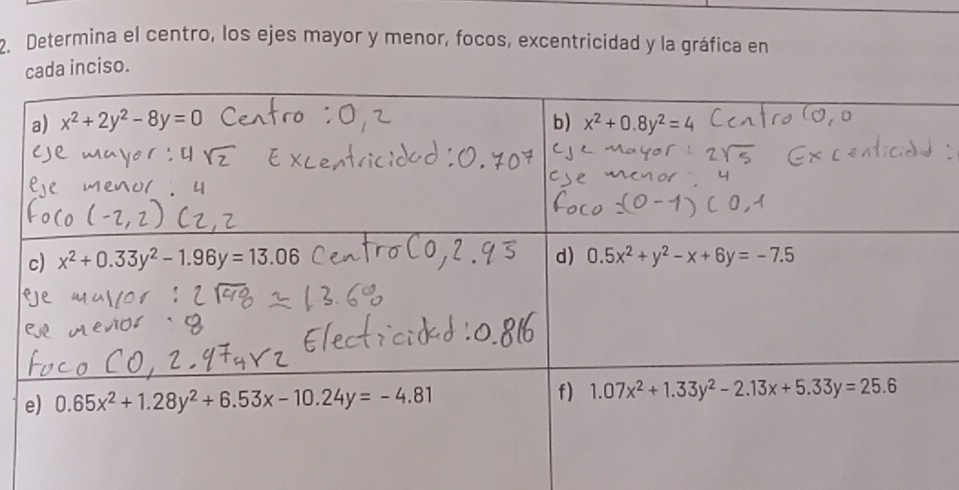 2. Determina el centro, los ejes mayor y menor, focos, excentricidad y la gráfica en
cada inciso.
a) x² + 2y² – 8y = 0 Centro : 0, 2
eje mayor : 4√2 Excentricidad : 0.707
eje menor . 4
foco (-2, 2) (2, 2
b) x² + 0.8y² = 4 Centro (0, 0
eje mayor : 2√5 Excenticidad :
eje menor : 4
foco :(0-1) (0, 1
c) x² + 0.33y² – 1.96y = 13.06 Centro (0, 2.95
eje mayor : 2√48 ≈ 13.6
eje menor . 8
foco (0, 2.97 4√2 Electicidad : 0.816
d) 0.5x² + y² – x + 6y = – 7.5
e) 0.65x² + 1.28y² + 6.53x – 10.24y = – 4.81
f) 1.07x² + 1.33y² – 2.13x + 5.33y = 25.6